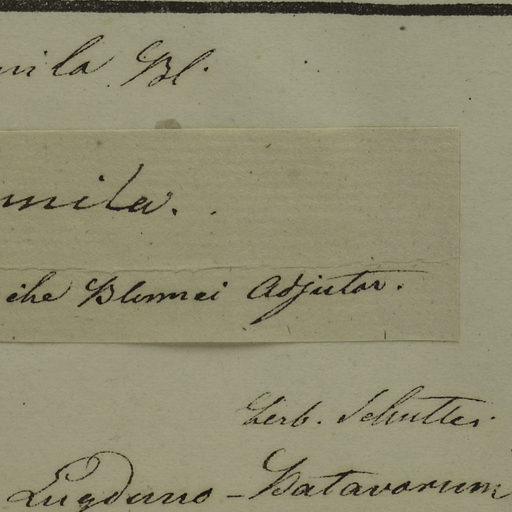 mila Bl.
mila.
che Blumei Adjutor.
Herb. Schultes.
Lugduno-Batavorum